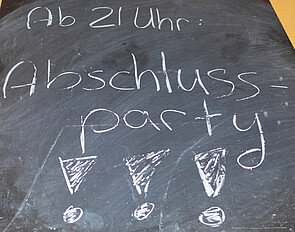 Ab 21 Uhr:
Abschluss-
party
!!!